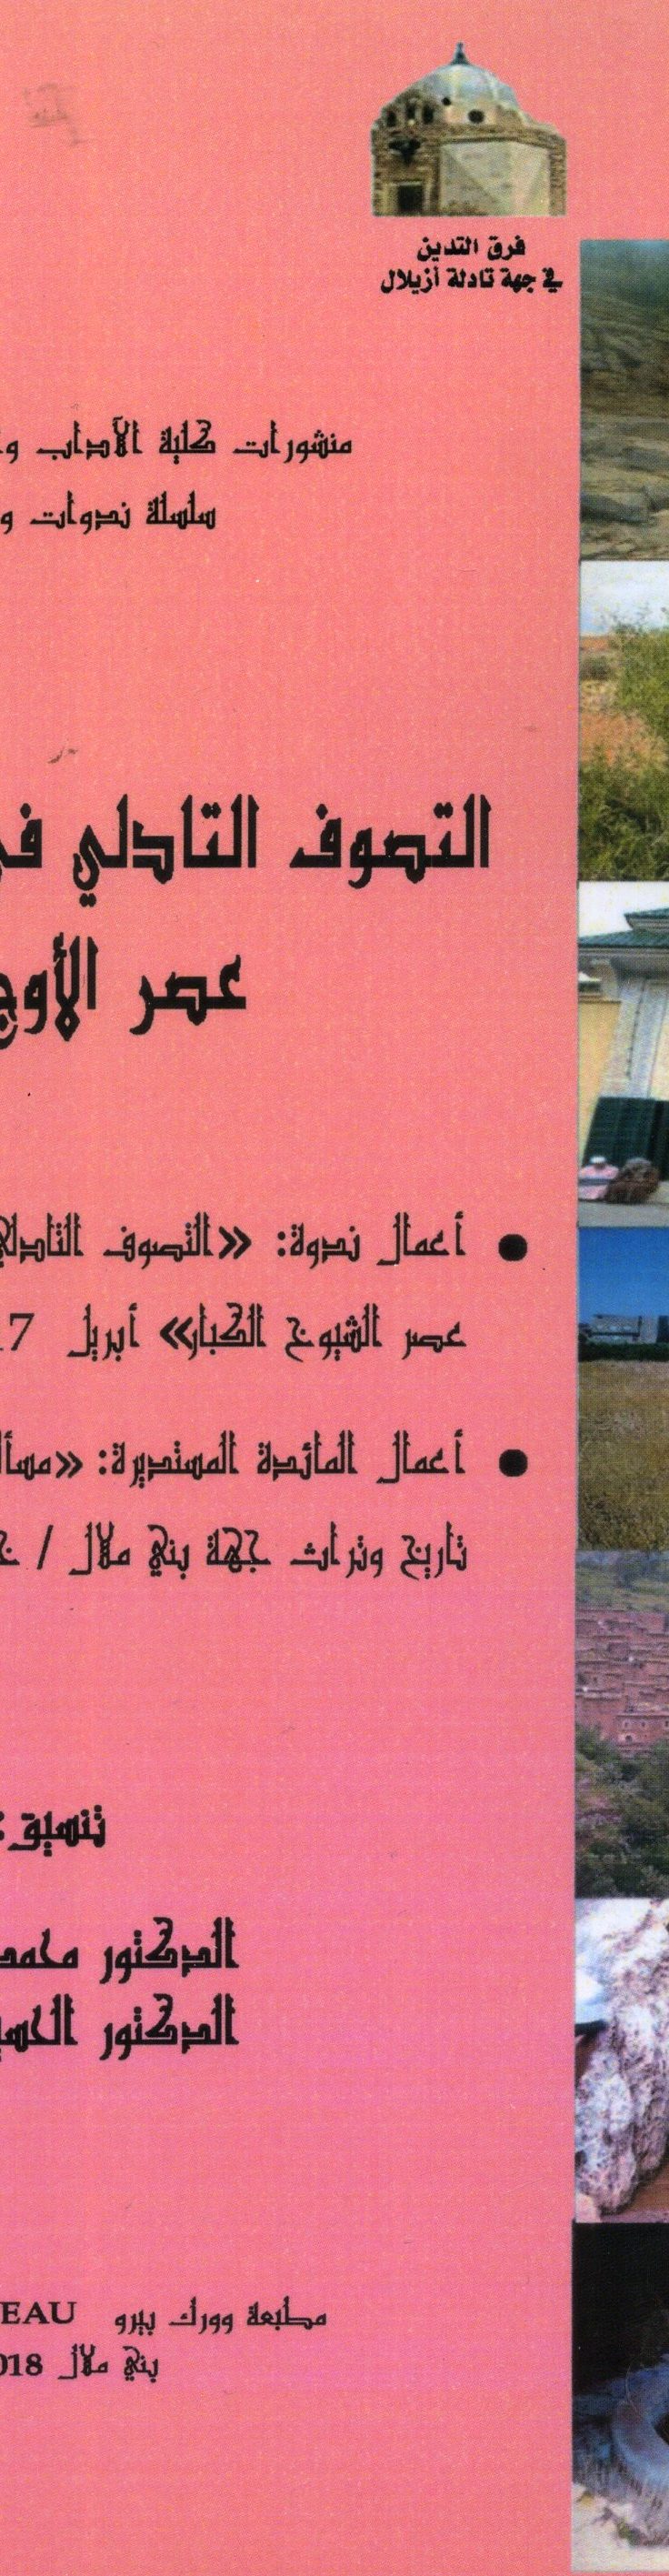 فرق التدين
في جهة تادلة أزيلال
منشورات كلية الآداب و
سلسلة ندوات و
التصوف التادلي في
عصر الأوج
• أعمال ندوة: «التصوف التادلي
عصر الشيوخ الكبار» أبريل 17
• أعمال المائدة المستديرة: «مسأل
تاريخ وتراث جهة بني ملال / خ
تنسيق:
الدكتور محمد
الدكتور الحسي
مطبعة وورك بيرو EAU
بني ملال 018